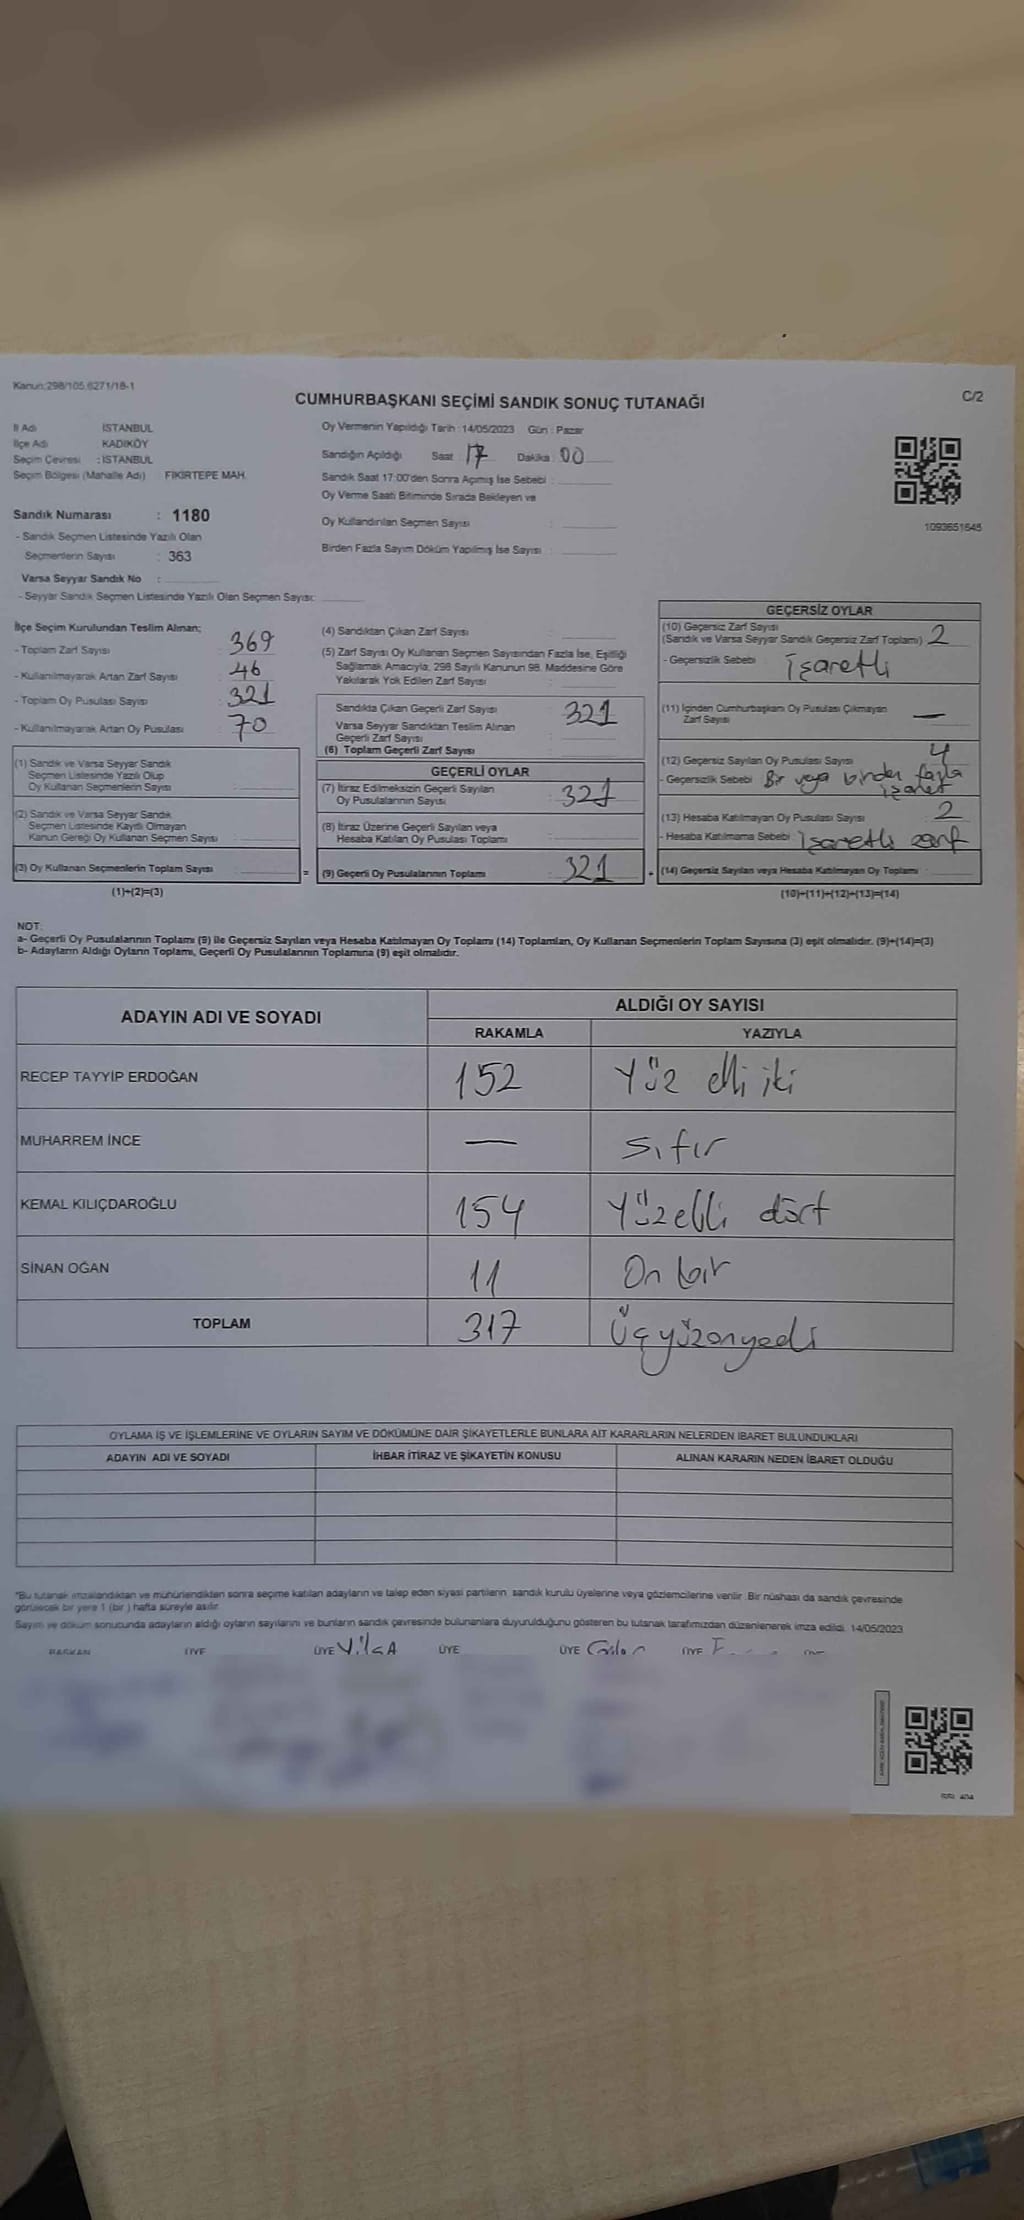 Kanun:298/105.6271/18-1
C/2
CUMHURBAŞKANI SEÇİMİ SANDIK SONUÇ TUTANAĞI
İl Adı İSTANBUL
İlçe Adı KADIKÖY
Seçim Çevresi : İSTANBUL
Seçim Bölgesi (Mahalle Adı) FİKİRTEPE MAH.
Sandık Numarası : 1180
- Sandık Seçmen Listesinde Yazılı Olan
Seçmenlerin Sayısı : 363
Varsa Seyyar Sandık No :
- Seyyar Sandık Seçmen Listesinde Yazılı Olan Seçmen Sayısı:
Oy Vermenin Yapıldığı Tarih : 14/05/2023 Gün : Pazar
Sandığın Açıldığı Saat : 17 Dakika : 00
Sandık Saat 17:00'den Sonra Açımış İse Sebebi :
Oy Verme Saati Bitiminde Sırada Bekleyen ve
Oy Kullandırılan Seçmen Sayısı :
Birden Fazla Sayım Döküm Yapılmış İse Sayısı :
1093651645
İlçe Seçim Kurulundan Teslim Alınan;
- Toplam Zarf Sayısı : 369
- Kullanılmayarak Artan Zarf Sayısı : 46
- Toplam Oy Pusulası Sayısı : 321
- Kullanılmayarak Artan Oy Pusulası : 70
(1) Sandık ve Varsa Seyyar Sandık
Seçmen Listesinde Yazılı Olup
Oy Kullanan Seçmenlerin Sayısı :
(2) Sandık ve Varsa Seyyar Sandık
Seçmen Listesinde Kayıtlı Olmayan
Kanun Gereği Oy Kullanan Seçmen Sayısı :
(3) Oy Kullanan Seçmenlerin Toplam Sayısı :
(1)+(2)=(3)
(4) Sandıktan Çıkan Zarf Sayısı :
(5) Zarf Sayısı Oy Kullanan Seçmen Sayısından Fazla İse, Eşitliği
Sağlamak Amacıyla, 298 Sayılı Kanunun 98. Maddesine Göre
Yakılarak Yok Edilen Zarf Sayısı :
Sandıkta Çıkan Geçerli Zarf Sayısı : 321
Varsa Seyyar Sandıktan Teslim Alınan
Geçerli Zarf Sayısı :
(6) Toplam Geçerli Zarf Sayısı :
GEÇERLİ OYLAR
(7) İtiraz Edilmeksizin Geçerli Sayılan
Oy Pusulalarının Sayısı : 321
(8) İtiraz Üzerine Geçerli Sayılan veya
Hesaba Katılan Oy Pusulaları Toplamı :
= (9) Geçerli Oy Pusulalarının Toplamı : 321
GEÇERSİZ OYLAR
(10) Geçersiz Zarf Sayısı
(Sandık ve Varsa Seyyar Sandık Geçersiz Zarf Toplamı) 2
- Geçersizlik Sebebi : İşaretli
(11) İçinden Cumhurbaşkanı Oy Pusulası Çıkmayan
Zarf Sayısı —
(12) Geçersiz Sayılan Oy Pusulası Sayısı 4
- Geçersizlik Sebebi : Bir veya birden fazla
işaret
(13) Hesaba Katılmayan Oy Pusulası Sayısı 2
- Hesaba Katılmama Sebebi : İşaretli zarf
+ (14) Geçersiz Sayılan veya Hesaba Katılmayan Oy Toplamı :
(10)+(11)+(12)+(13)=(14)
NOT:
a- Geçerli Oy Pusulalarının Toplamı (9) ile Geçersiz Sayılan veya Hesaba Katılmayan Oy Toplamı (14) Toplamları, Oy Kullanan Seçmenlerin Toplam Sayısına (3) eşit olmalıdır. (9)+(14)=(3)
b- Adayların Aldığı Oyların Toplamı, Geçerli Oy Pusulalarının Toplamına (9) eşit olmalıdır.
ADAYIN ADI VE SOYADI
ALDIĞI OY SAYISI
RAKAMLA YAZIYLA
RECEP TAYYİP ERDOĞAN 152 Yüz elli iki
MUHARREM İNCE — Sıfır
KEMAL KILIÇDAROĞLU 154 Yüzelli dört
SİNAN OĞAN 11 On bir
TOPLAM 317 Üçyüzonyedi
OYLAMA İŞ VE İŞLEMLERİNE VE OYLARIN SAYIM VE DÖKÜMÜNE DAİR ŞİKAYETLERLE BUNLARA AİT KARARLARIN NELERDEN İBARET BULUNDUKLARI
ADAYIN ADI VE SOYADI İHBAR İTİRAZ VE ŞİKAYETİN KONUSU ALINAN KARARIN NEDEN İBARET OLDUĞU
*Bu tutanak imzalandıktan ve mühürlendikten sonra seçime katılan adayların ve talep eden siyasi partilerin sandık kurulu üyelerine veya gözlemcilerine verilir. Bir nüshası da sandık çevresinde
görülecek bir yere 1 (bir) hafta süreyle asılır.
Sayım ve döküm sonucunda adayların aldığı oyların sayılarını ve bunların sandık çevresinde bulunanlara duyurulduğunu gösteren bu tutanak tarafımızdan düzenlenerek imza edildi. 14/05/2023
BAŞKAN ÜYE ÜYE ÜYE ÜYE ÜYE